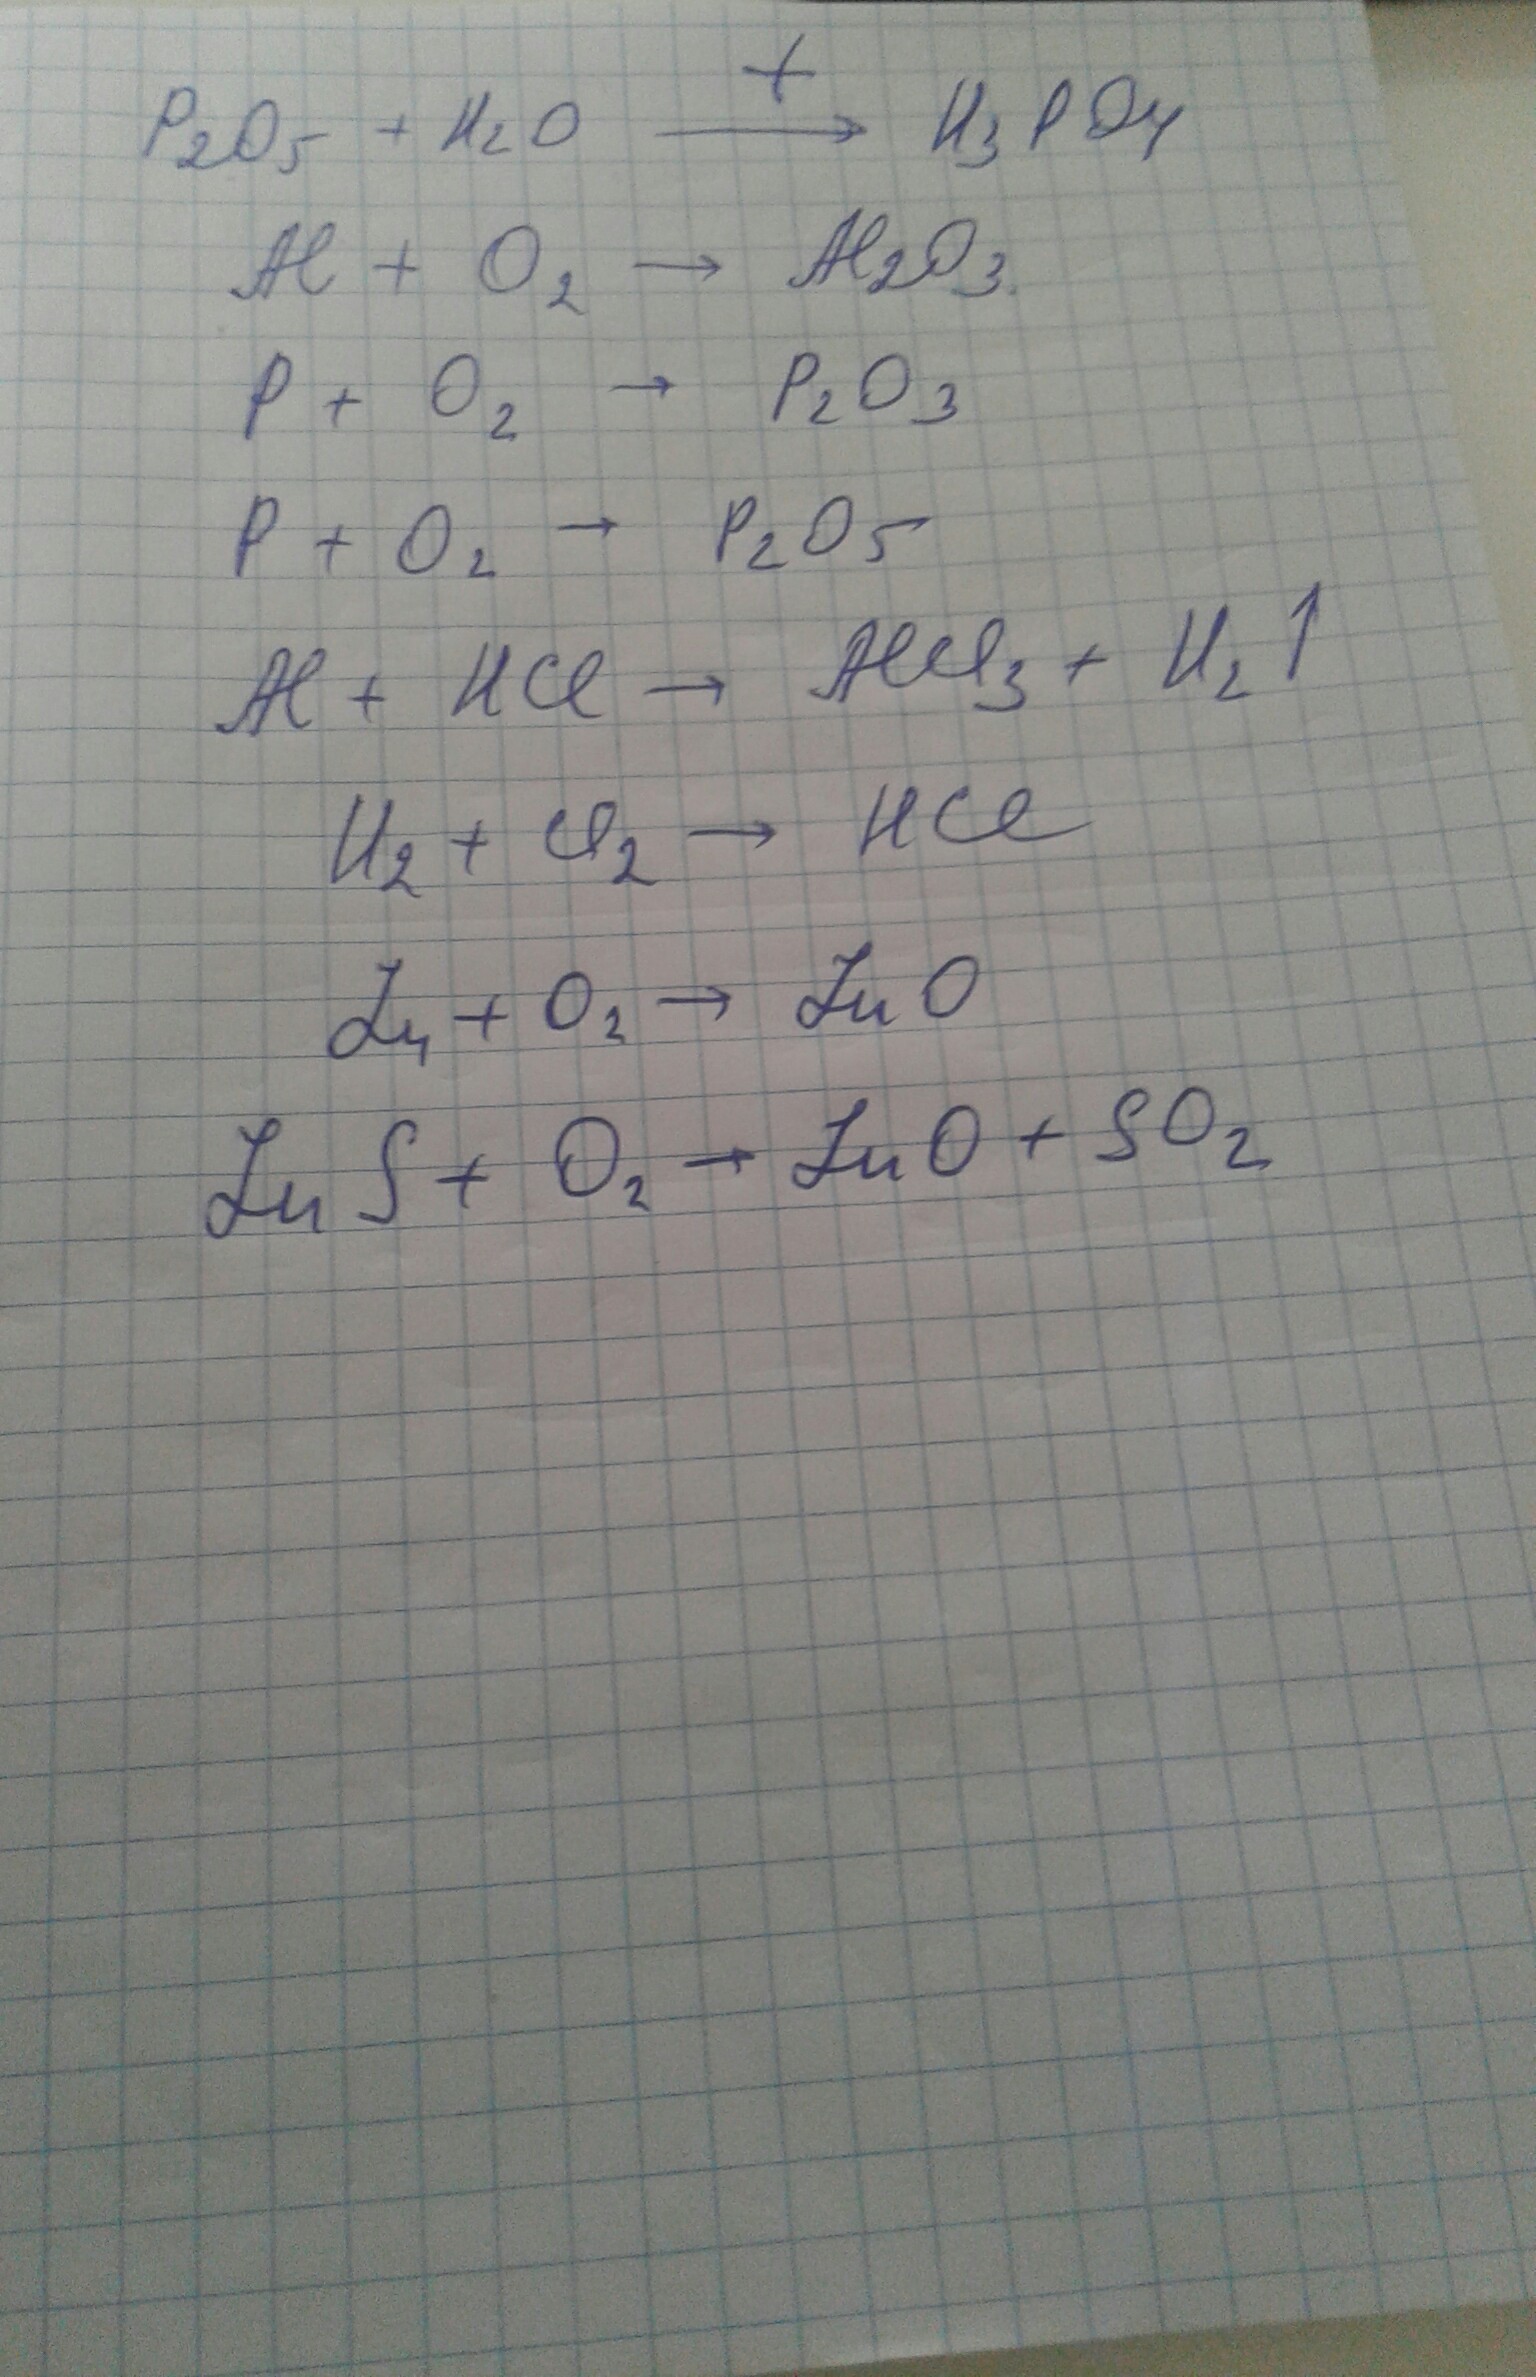 P₂O₅ + H₂O →^t H₃PO₄
Al + O₂ → Al₂O₃.
P + O₂ → P₂O₃
P + O₂ → P₂O₅
Al + HCl → AlCl₃ + H₂↑
H₂ + Cl₂ → HCl
Zn + O₂ → ZnO
ZnS + O₂ → ZnO + SO₂